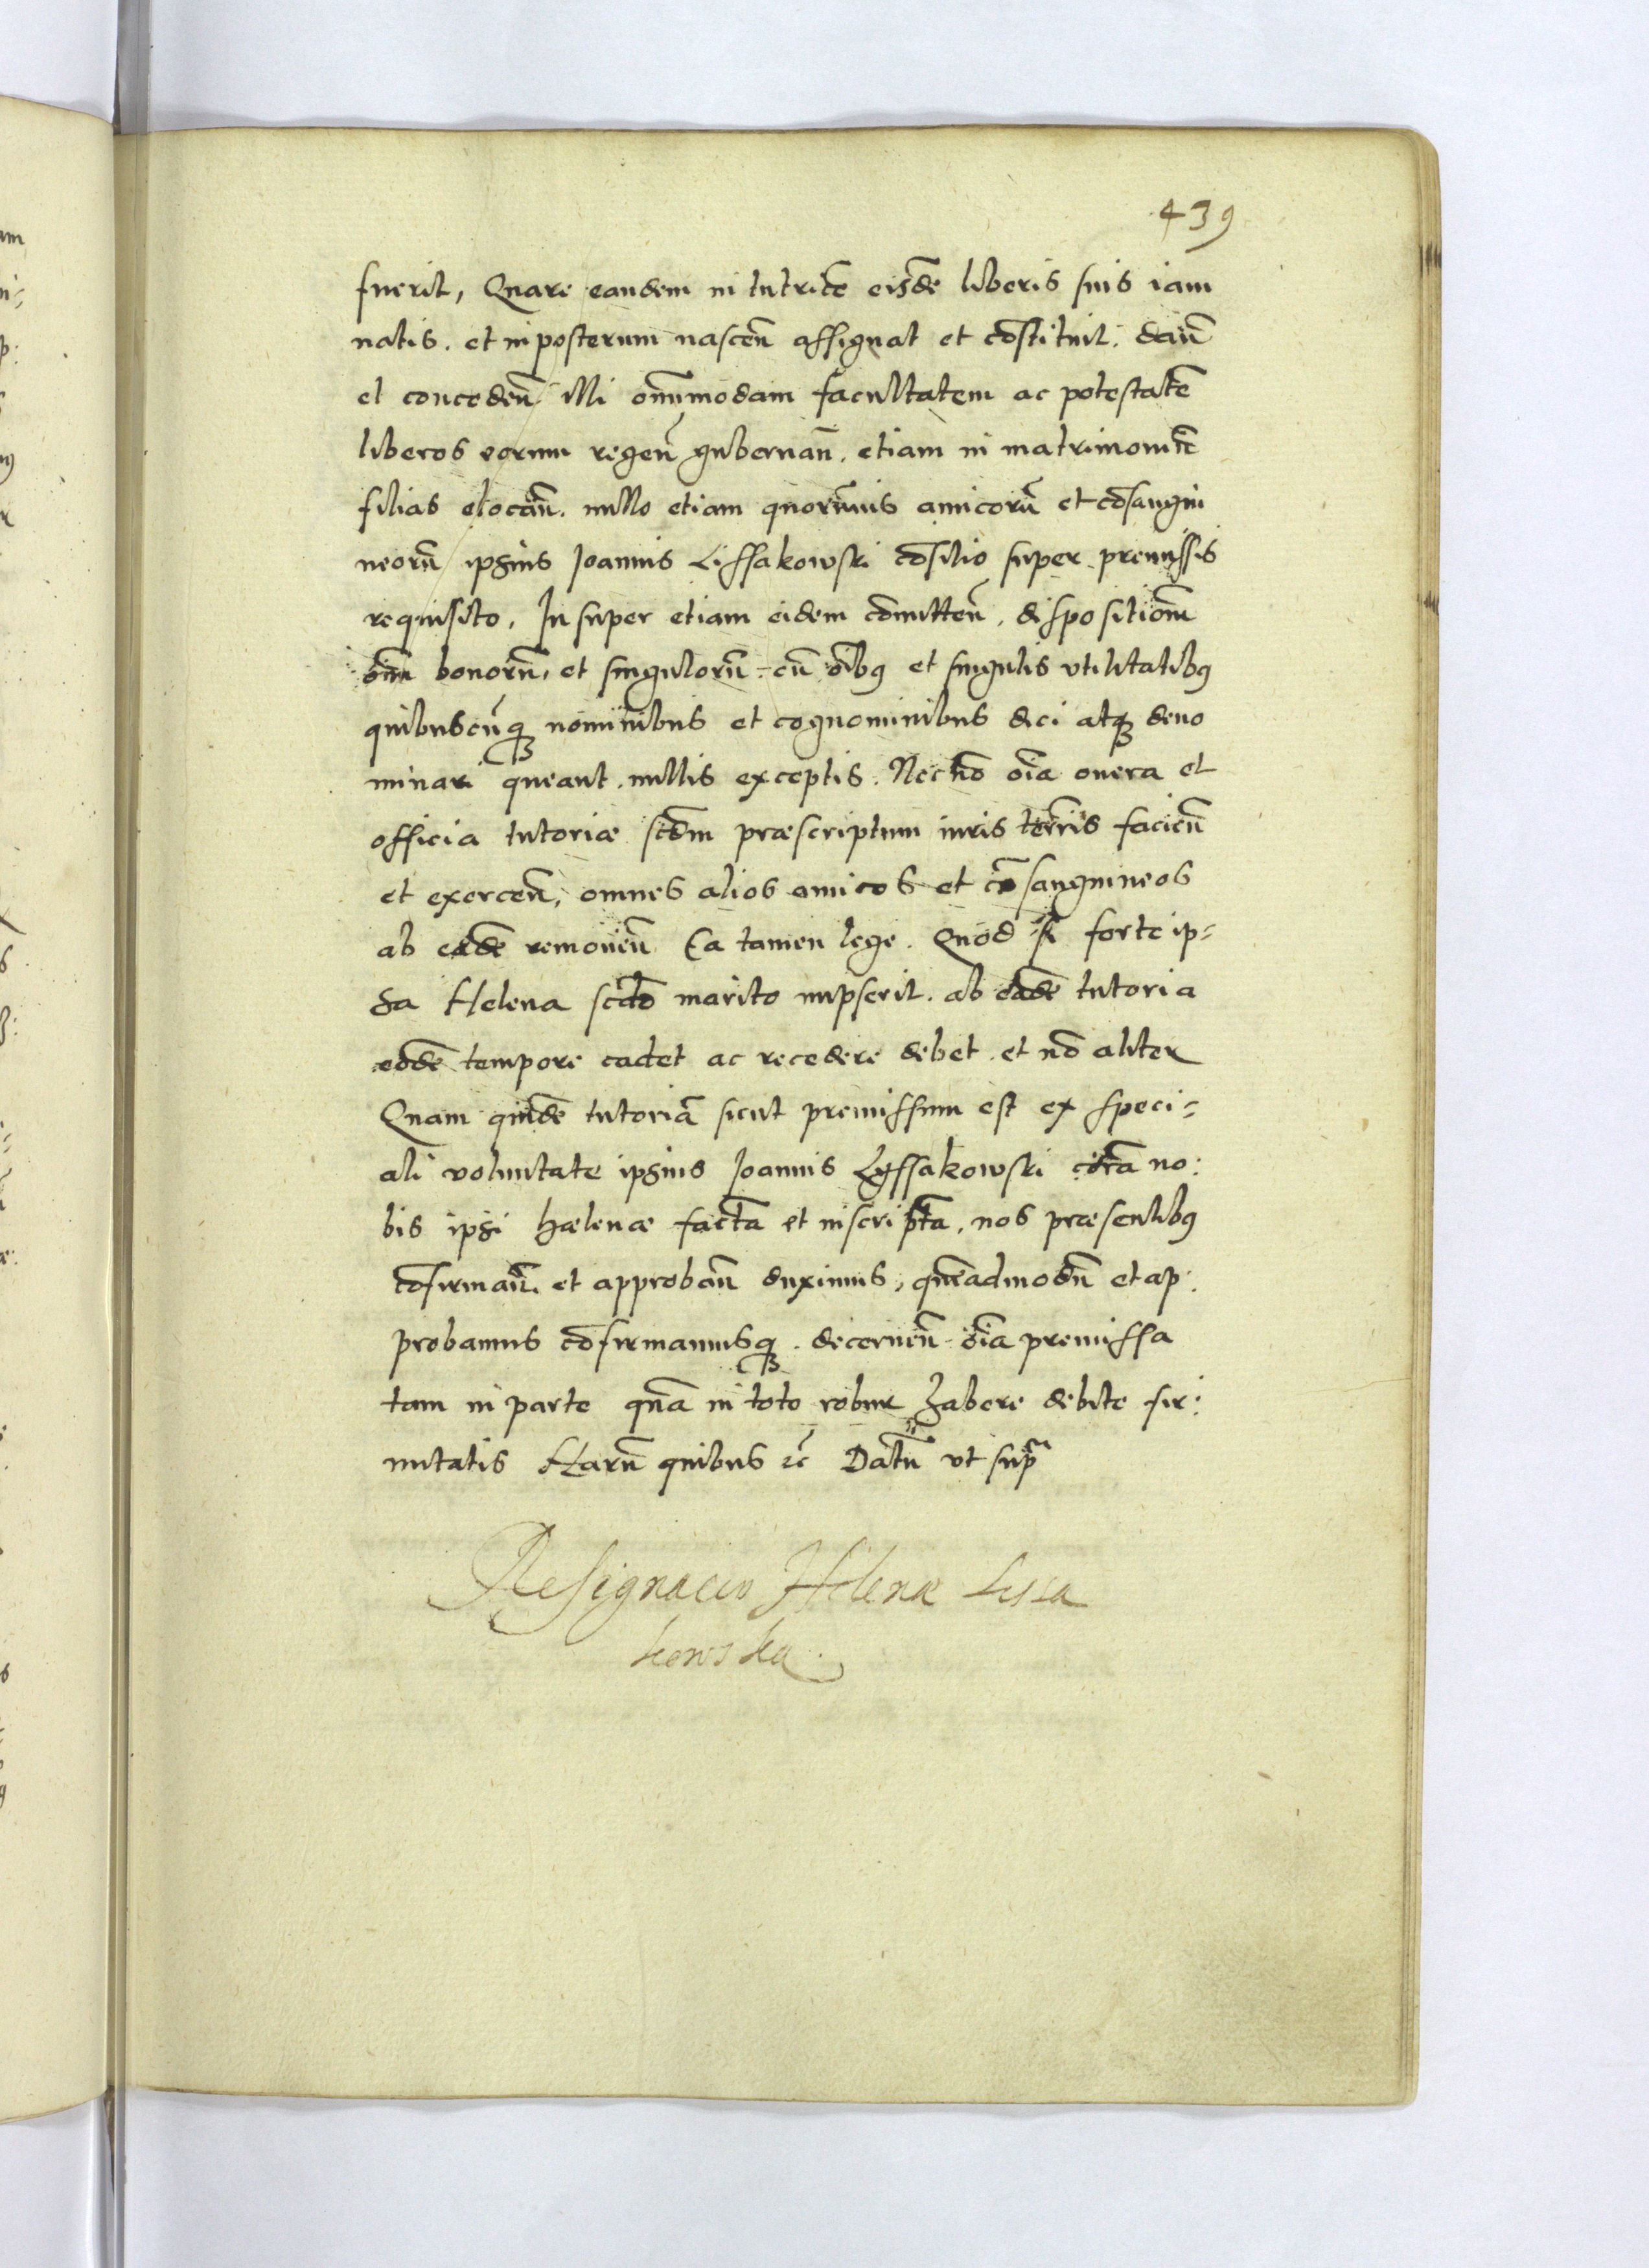 439
fuerit, Quare eandem in tutricē eisdē liberis suis iam
natis. et in posterum nascen̄ assignat et cōstituit. dan̄
et conceden̄ illi om̄nimodam facultatem ac potestatē
liberos eorum regen̄ gubernan̄. etiam in matrimoniū
filias elocan̄. nullo etiam quorūvis amicorū et cōsangui
neorū ipsius Joannis Lissakowski cōsilio super premissis
requisito, In super etiam eidem cōmitten̄, dispositionē
om̄m bonorū, et singulorū cū oībꝰ et singulis vtilitatibꝰ
quibuscūqꝫ nominibus et cognominibus dici atqꝫ deno
minari queant. nullis exceptis. Nec nō oīa onera et
officia tutoriæ scdm̄ præscriptum iuris terrīs facien̄
et exercen̄, omnes alios amicos et cōsanguineos
ab eadē remouen̄ Ea tamen lege. Quod si forte ip=
sa Helena scdō marito nupserit. ab eadē tutoria
eodē tempore cadet ac recedere debet et nō aliter
Quam quidē tutoriā sicut premissum est ex speci=
ali voluntate ipsius Joannis Lyssakowski corā no:
bis ipsi hælenæ factā et inscriptā, nos præsentibꝰ
cōfirman̄. et approban̄ duximus, quēadmodū et ap:
probamus cōfirmamusqꝫ. decernen̄ oīa premissa
tam in parte quā in toto robur habere debite fir:
mitatis Harū quibus ꝛc̄ Datū vt supra
Resignacio Helenæ Lissa
kowska.